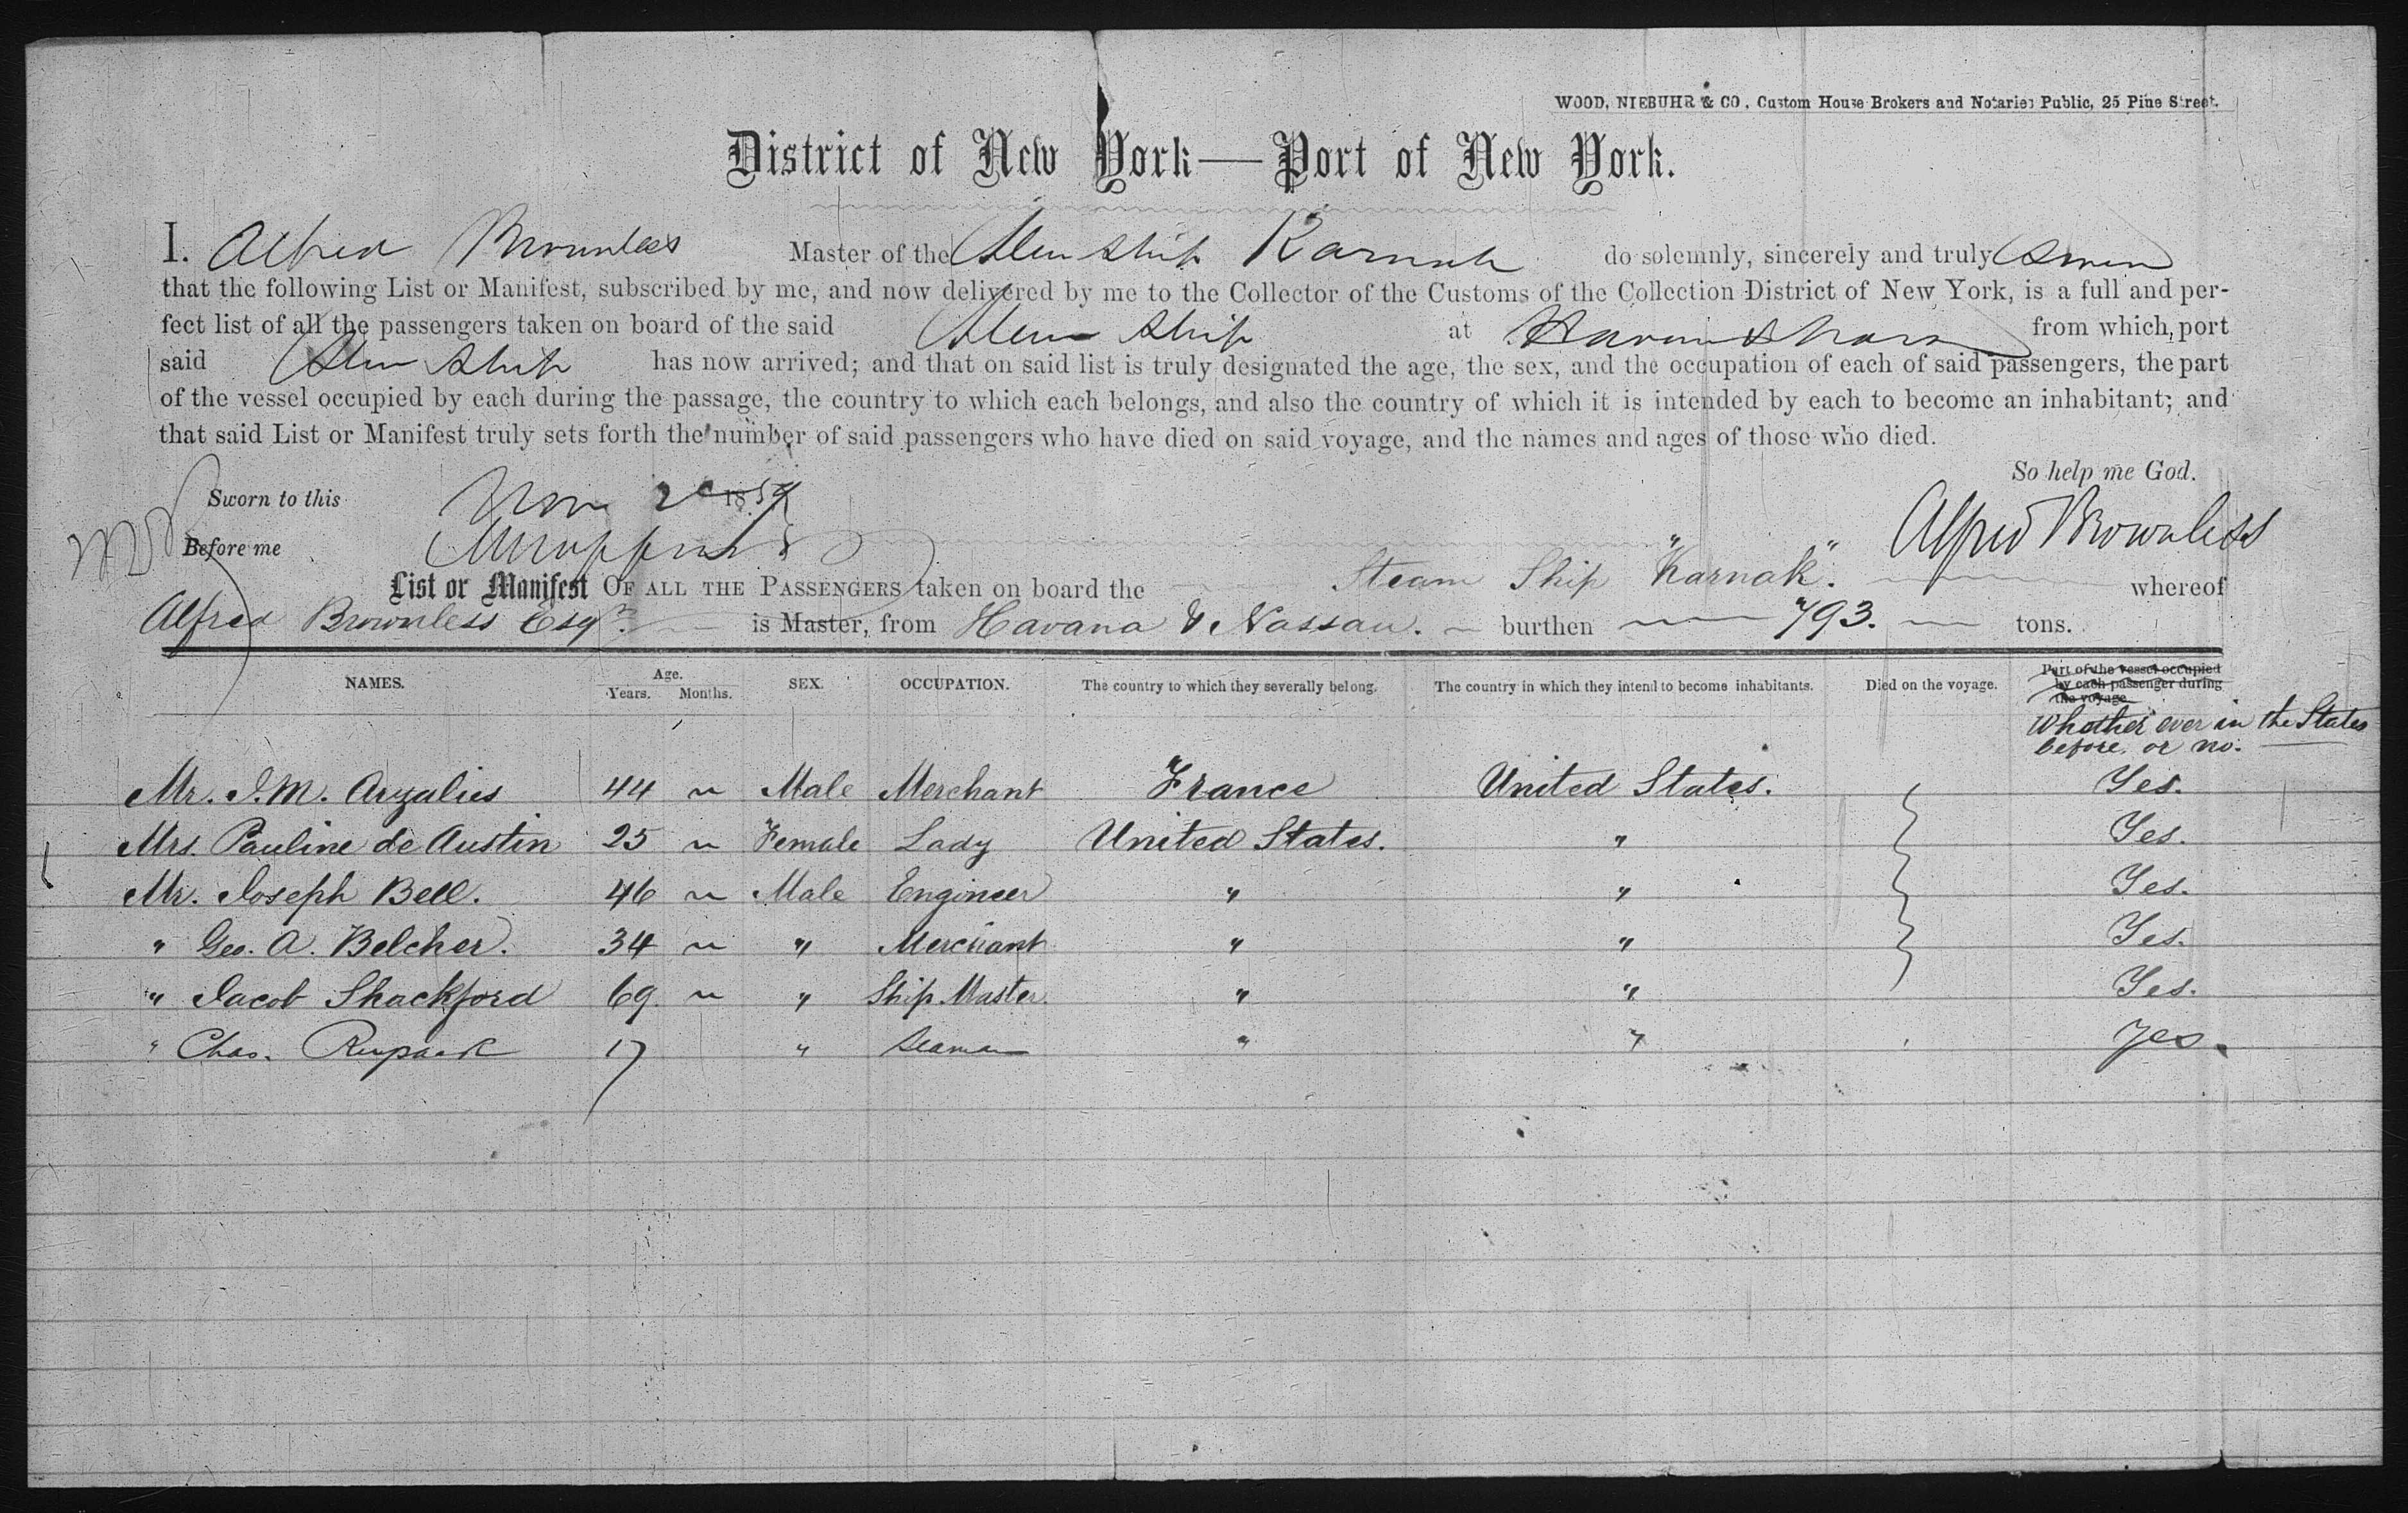 WOOD, NIEBUHR & CO., Custom House Brokers and Notaries Public, 25 Pine Street.
District of New York—Port of New York.
I. Alfred Brownless Master of the Stm Ship Karnak do solemnly, sincerely and truly Swear
that the following List or Manifest, subscribed by me, and now delivered by me to the Collector of the Customs of the Collection District of New York, is a full and per-
fect list of all the passengers taken on board of the said Stm Ship at Havana & Nassau from which port
said Stm Ship has now arrived; and that on said list is truly designated the age, the sex, and the occupation of each of said passengers, the part
of the vessel occupied by each during the passage, the country to which each belongs, and also the country of which it is intended by each to become an inhabitant; and
that said List or Manifest truly sets forth the number of said passengers who have died on said voyage, and the names and ages of those who died.
So help me God.
Sworn to this Nov 2 1859
Alfred Brownless
Before me
List or Manifest OF ALL THE PASSENGERS taken on board the Steam Ship "Karnak". whereof
Alfred Brownless Esqr. is Master, from Havana & Nassau. burthen 793. tons.
NAMES. Age. Years. Months. SEX. OCCUPATION. The country to which they severally belong. The country in which they intend to become inhabitants. Died on the voyage. Part of the vessel occupied by each passenger during the voyage
Whether ever in the States
before, or no.
Mr. J. M. Arzalies 44 " Male Merchant France United States. Yes.
Mrs. Pauline de Austin 25 " Female Lady United States. " Yes.
Mr. Joseph Bell. 46 " Male Engineer " " Yes.
" Geo. A. Belcher. 34 " " Merchant " " Yes.
" Jacob Shackford 69 " " Ship Master " " Yes.
" Chas. 17 " Seaman " " Yes.